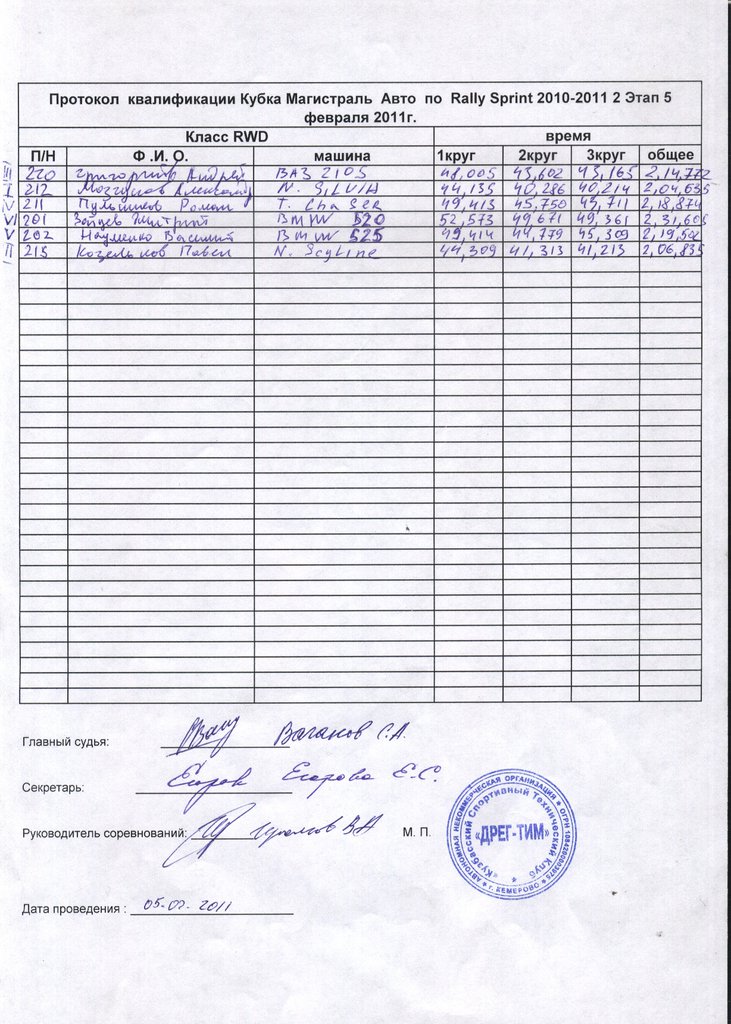 Протокол квалификации Кубка Магистраль Авто по Rally Sprint 2010-2011 2 Этап 5
февраля 2011г.
Класс RWD время
П/Н Ф .И. О. машина 1круг 2круг 3круг общее
III 220 Григорьев Андрей ВАЗ 2105 48,005 43,602 43,165 2,14,772
I 212 Александр N. SILVIA 44,135 40,286 40,214 2,04,635
IV 211 Роман T. Chaser 49,413 45,750 43,711 2,18,874
VI 201 Зайцев Дмитрий BMW 520 52,573 49,671 49,361 2,31,605
V 202 Науменко Василий BMW 525 49,414 44,779 45,309 2,19,502
II 215 Козельков Павел N. Scyline 44,309 41,313 41,213 2,06,835
Главный судья: Ваганов С.А.
Секретарь: Егорова Е.С.
Руководитель соревнований: М. П.
Дата проведения : 05.02.2011
АВТОНОМНАЯ НЕКОММЕРЧЕСКАЯ ОРГАНИЗАЦИЯ
«Кузбасский Спортивный Технический Клуб
«ДРЕГ-ТИМ»
г. КЕМЕРОВО